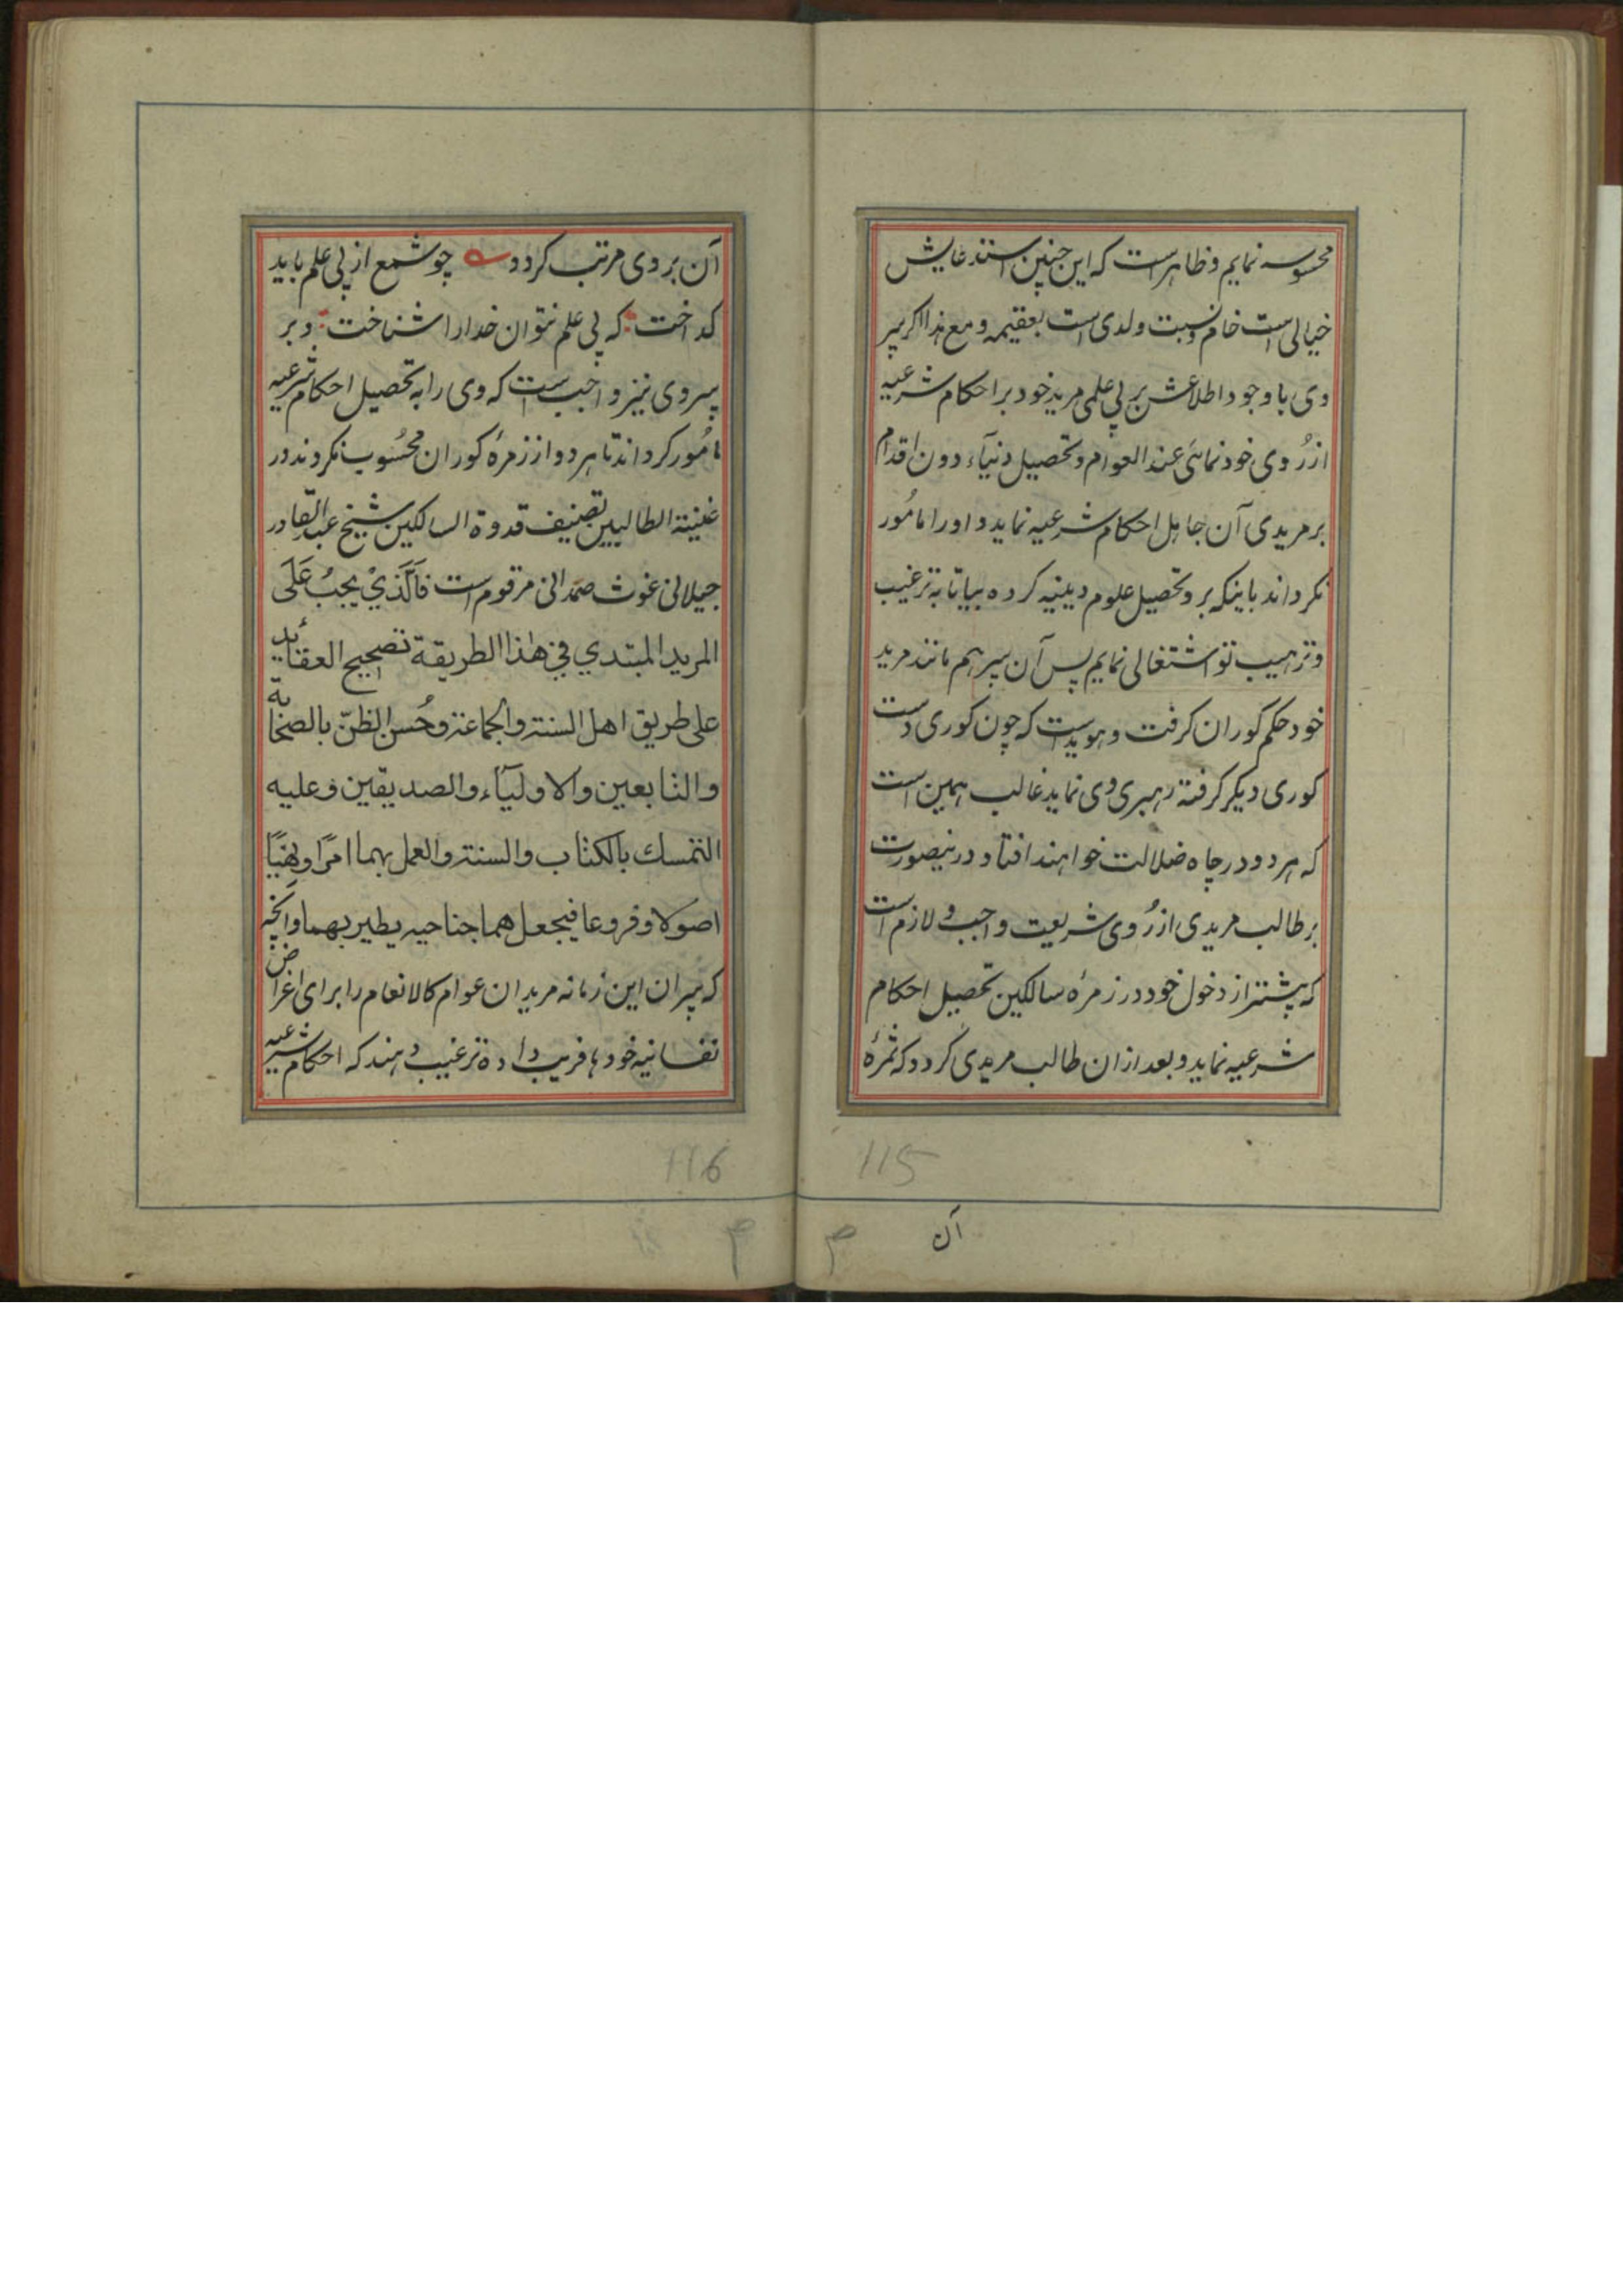 محسوسه نمایم و ظاهرست که این چنین استدعایش
خیالی است خام و نسبت ولدی است بعقیمه و مع هذا اکر پیر
وی با وجود اطلاعش بر بی علمی مرید خود بر احکام شرعیه
از رُوی خود نمائی عند العوام و تحصیل دنیآء دون اقدام
بر مریدی آن جاهل احکام شرعیه نماید و او را مامُور
نکرداند باینکه برو تحصیل علوم دینیه کرده بیا تا به ترغیب
و ترهیب تو اشتغالی نمایم پس آن پیر هم مانند مرید
خود حکم کوران کرفت و هویدست که چون کوری دست
کوری دیکر کرفته رهبری وی نماید غالب همین است
که هر دو در چاه ضلالت خواهند افتاد و درینصورت
بر طالب مریدی از رُوی شریعت واجب و لازم است
که پیشتر از دخول خود در زمرهٔ سالکین تحصیل احکام
شرعیه نماید و بعد ازان طالب مریدی کردد که ثمرهٔ
115
آن
آن بروی مرتب کردد و چو شمع از پی علم باید
کداخت که بی علم نتوان خدا را شناخت و بر
پیر وی نیز واجب است که وی را به تحصیل احکام شرعیه
مامُور کرداند تا هر دو از زمرهٔ کوران محسُوب نکردند در
غنیة الطالبین تصنیف قدوة السالکین شیخ عبد القادر
جیلانی غوث صمدانی مرقوم است فَالَّذيْ يجبُ عَلَى
المريد المبتدي في هذا الطريقة تصحيح العقائد
على طريق اهل السنة والجماعة وحُسن الظنّ بالصحابة
والتابعين والاوليآء والصديقين وعليه
التمسك بالكتاب والسنة والعمل بهما امرًا ونهيًا
اصولا وفروعا فيجعل هما جناحيه يطير بهما وآنچه
که پیران این زمانه مریدان عوام کالانعام را برای اغراض
نفسانیه خودها فریب داده ترغیب دهند که احکام شرعیه
116